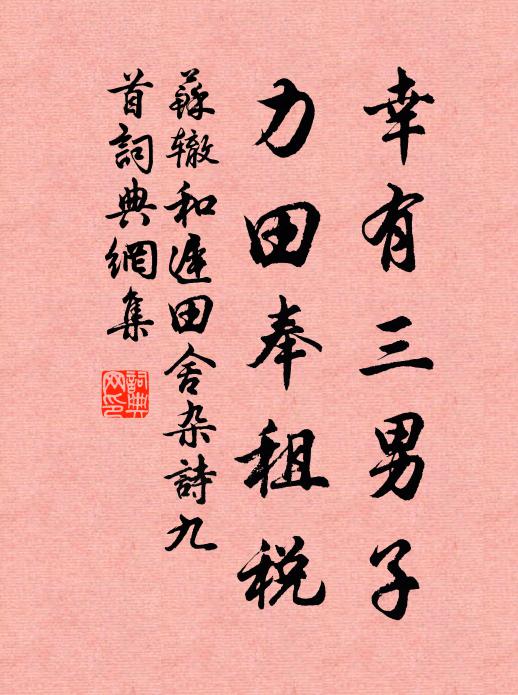 幸有三男子
力田奉租税
蘇辙和遲田舍杂詩九
首詞典網集
詞典
网印